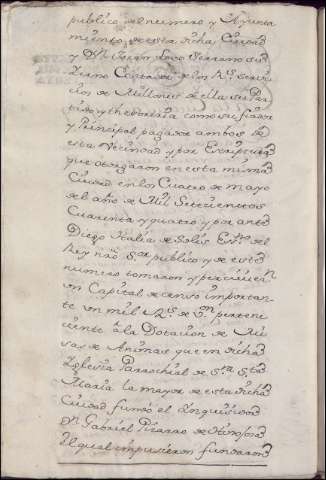 publico del numero y Ayunta
miento de esta dicha Ciudad
y Dn. Juan Jove Serrano su
theniente de los Rs. Servi
cios de Millones de ella su Par
tido y thesoreria como su fiador
y Principal pagador ambos de
esta Vecindad y por Escriptura
que otorgaron en esta misma
Ciudad en los Quatro de mayo
del año de Mil Setecientos
Quarenta y quatro y por ante
Diego Italia de Solis Esno. del
Rey nro. Sor. publico y de este
numero tomaron y percivieron
un Capital de censo importan
te en mil Rs. de Vn. pertene
ciente â la Dotacion de Mi
sas de Animas que en dicha
Iglesia Parrochial de Sra. Sta.
Maria la mayor de esta dicha
Ciudad fundó el Inquisidor
Dn. Gabriel Pizarro de Hinojosa
el qual impusieron fundaron